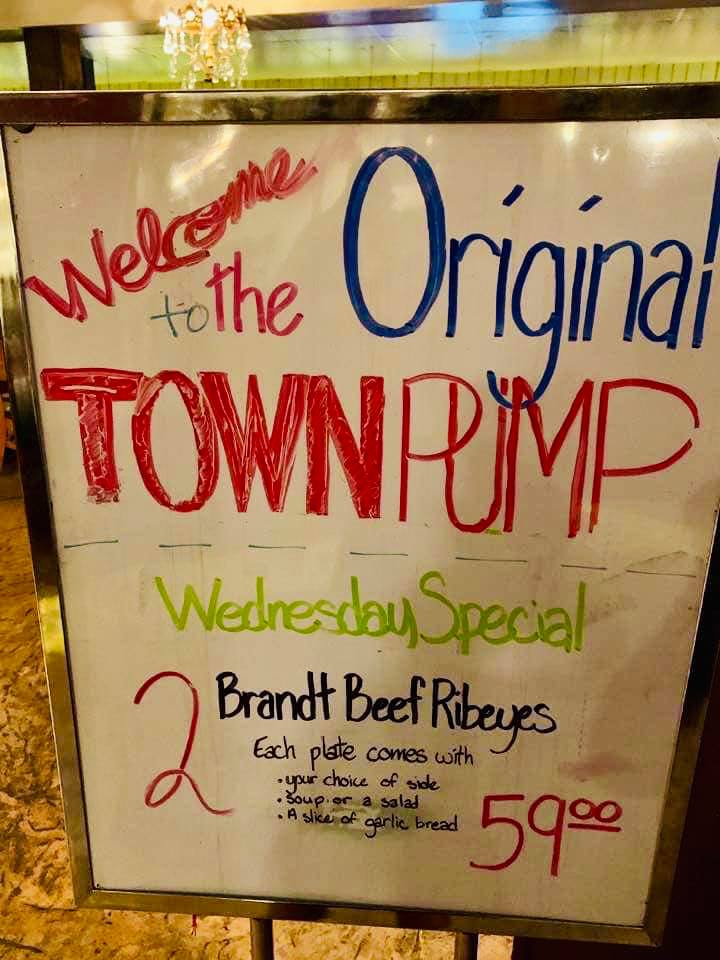 Welcome
to the Original
TOWN PUMP
Wednesday Special
2 Brandt Beef Ribeyes
Each plate comes with
• your choice of side
• Soup or a salad
• A slice of garlic bread
59.00